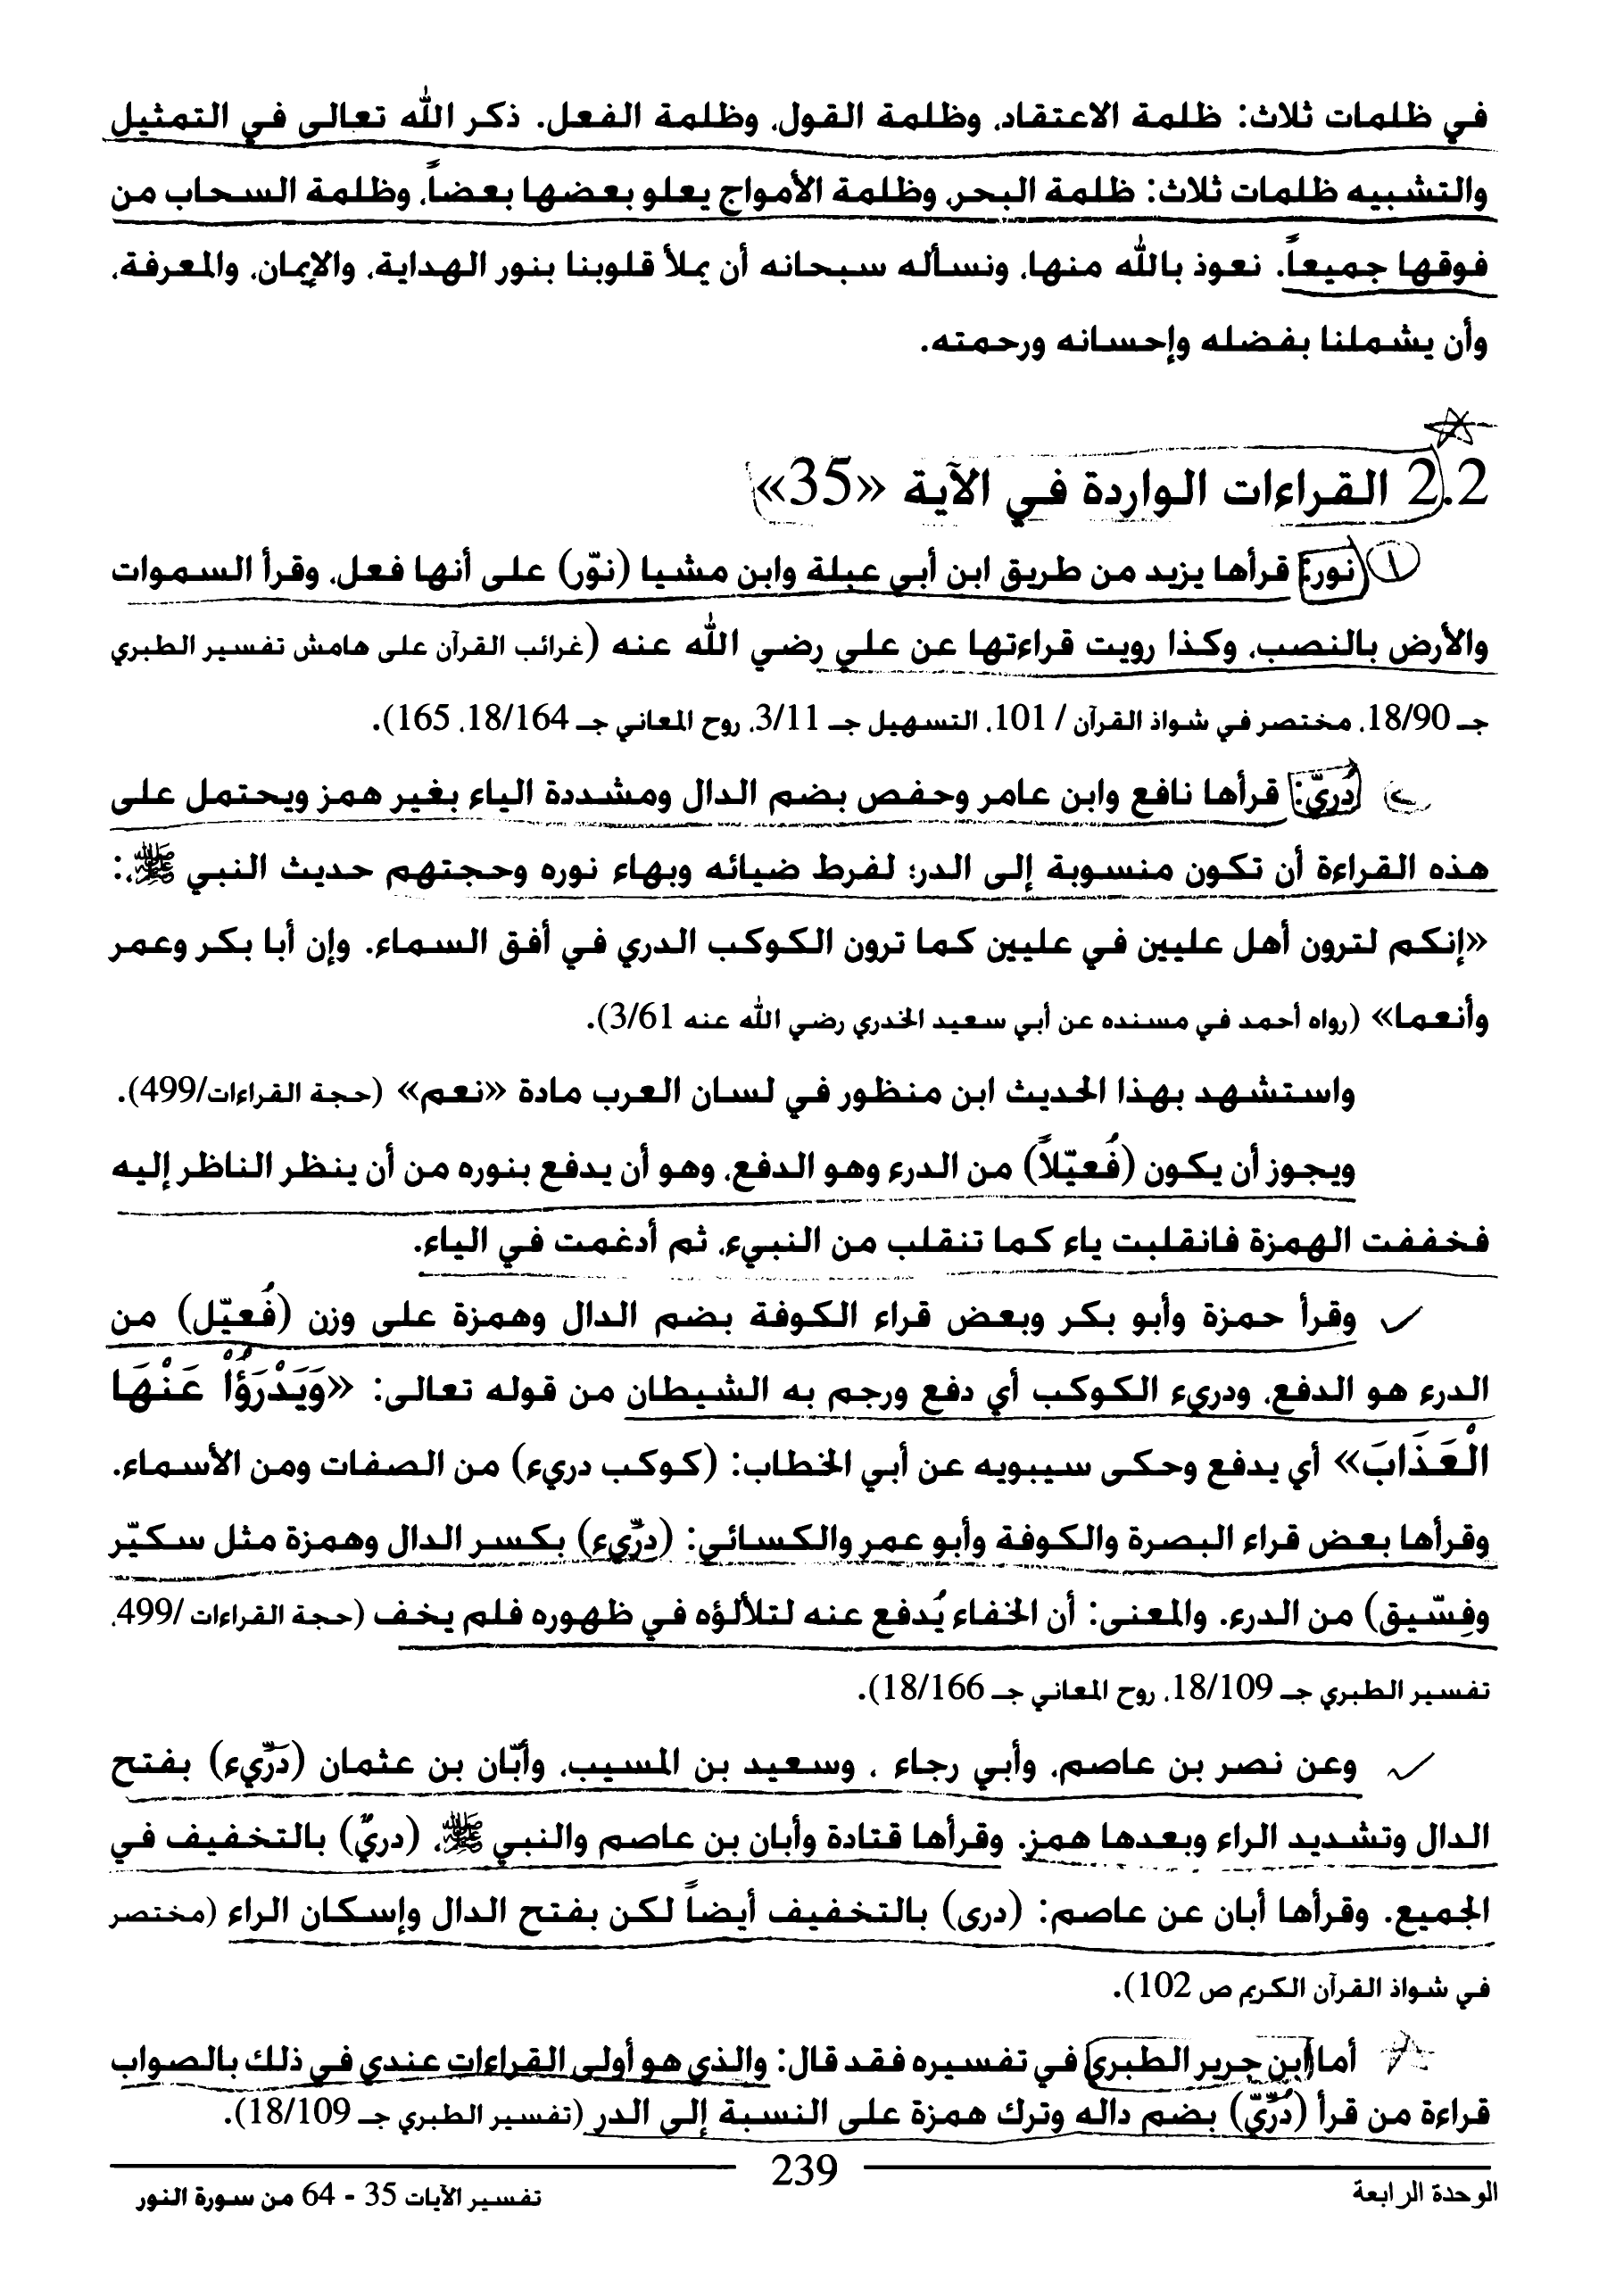 في ظلمات ثلاث: ظلمة الاعتقاد، وظلمة القول، وظلمة الفعل. ذكر الله تعالى في التمثيل
والتشبيه ظلمات ثلاث: ظلمة البحر، وظلمة الأمواج يعلو بعضها بعضاً، وظلمة السحاب من
فوقها جميعاً. نعوذ بالله منها، ونسأله سبحانه أن يملأ قلوبنا بنور الهداية، والإيمان، والمعرفة،
وأن يشملنا بفضله وإحسانه ورحمته.
2.2 القراءات الواردة في الآية «35»
١ نور: قرأها يزيد من طريق ابن أبي عبلة وابن مشيا (نوّر) على أنها فعل، وقرأ السموات
والأرض بالنصب، وكذا رويت قراءتها عن علي رضي الله عنه (غرائب القرآن على هامش تفسير الطبري
جـ 18/90، مختصر في شواذ القرآن / 101، التسهيل جـ 3/11، روح المعاني جـ 18/164، 165).
دُريّ: قرأها نافع وابن عامر وحفص بضم الدال ومشددة الياء بغير همز ويحتمل على
هذه القراءة أن تكون منسوبة إلى الدر؛ لفرط ضيائه وبهاء نوره وحجتهم حديث النبي ﷺ:
«إنكم لترون أهل عليين في عليين كما ترون الكوكب الدري في أفق السماء. وإن أبا بكر وعمر
وأنعما» (رواه أحمد في مسنده عن أبي سعيد الخدري رضي الله عنه 3/61).
واستشهد بهذا الحديث ابن منظور في لسان العرب مادة «نعم» (حجة القراءات/499).
ويجوز أن يكون (فُعيّلاً) من الدرء وهو الدفع، وهو أن يدفع بنوره من أن ينظر الناظر إليه
فخففت الهمزة فانقلبت ياء كما تنقلب من النبيء، ثم أدغمت في الياء.
وقرأ حمزة وأبو بكر وبعض قراء الكوفة بضم الدال وهمزة على وزن (فُعيّل) من
الدرء هو الدفع، ودريء الكوكب أي دفع ورجم به الشيطان من قوله تعالى: «وَيَدْرَؤُاْ عَنْهَا
الْعَذَابَ» أي يدفع وحكى سيبويه عن أبي الخطاب: (كوكب دريء) من الصفات ومن الأسماء.
وقرأها بعض قراء البصرة والكوفة وأبو عمر والكسائي: (درّيء) بكسر الدال وهمزة مثل سكيّر
وفسّيق) من الدرء. والمعنى: أن الخفاء يُدفع عنه لتلألؤه في ظهوره فلم يخف (حجة القراءات /499،
تفسير الطبري جـ 18/109، روح المعاني جـ 18/166).
وعن نصر بن عاصم، وأبي رجاء ، وسعيد بن المسيب، وأبّان بن عثمان (دَرّيء) بفتح
الدال وتشديد الراء وبعدها همز. وقرأها قتادة وأبان بن عاصم والنبي ﷺ، (دريٌ) بالتخفيف في
الجميع. وقرأها أبان عن عاصم: (درى) بالتخفيف أيضاً لكن بفتح الدال وإسكان الراء (مختصر
في شواذ القرآن الكريم ص 102).
أما ابن جرير الطبري في تفسيره فقد قال: والذي هو أولى القراءات عندي في ذلك بالصواب
قراءة من قرأ (دُرّيّ) بضم داله وترك همزة على النسبة إلى الدر (تفسير الطبري جـ 18/109).
239
الوحدة الرابعة
تفسير الآيات 35 - 64 من سورة النور